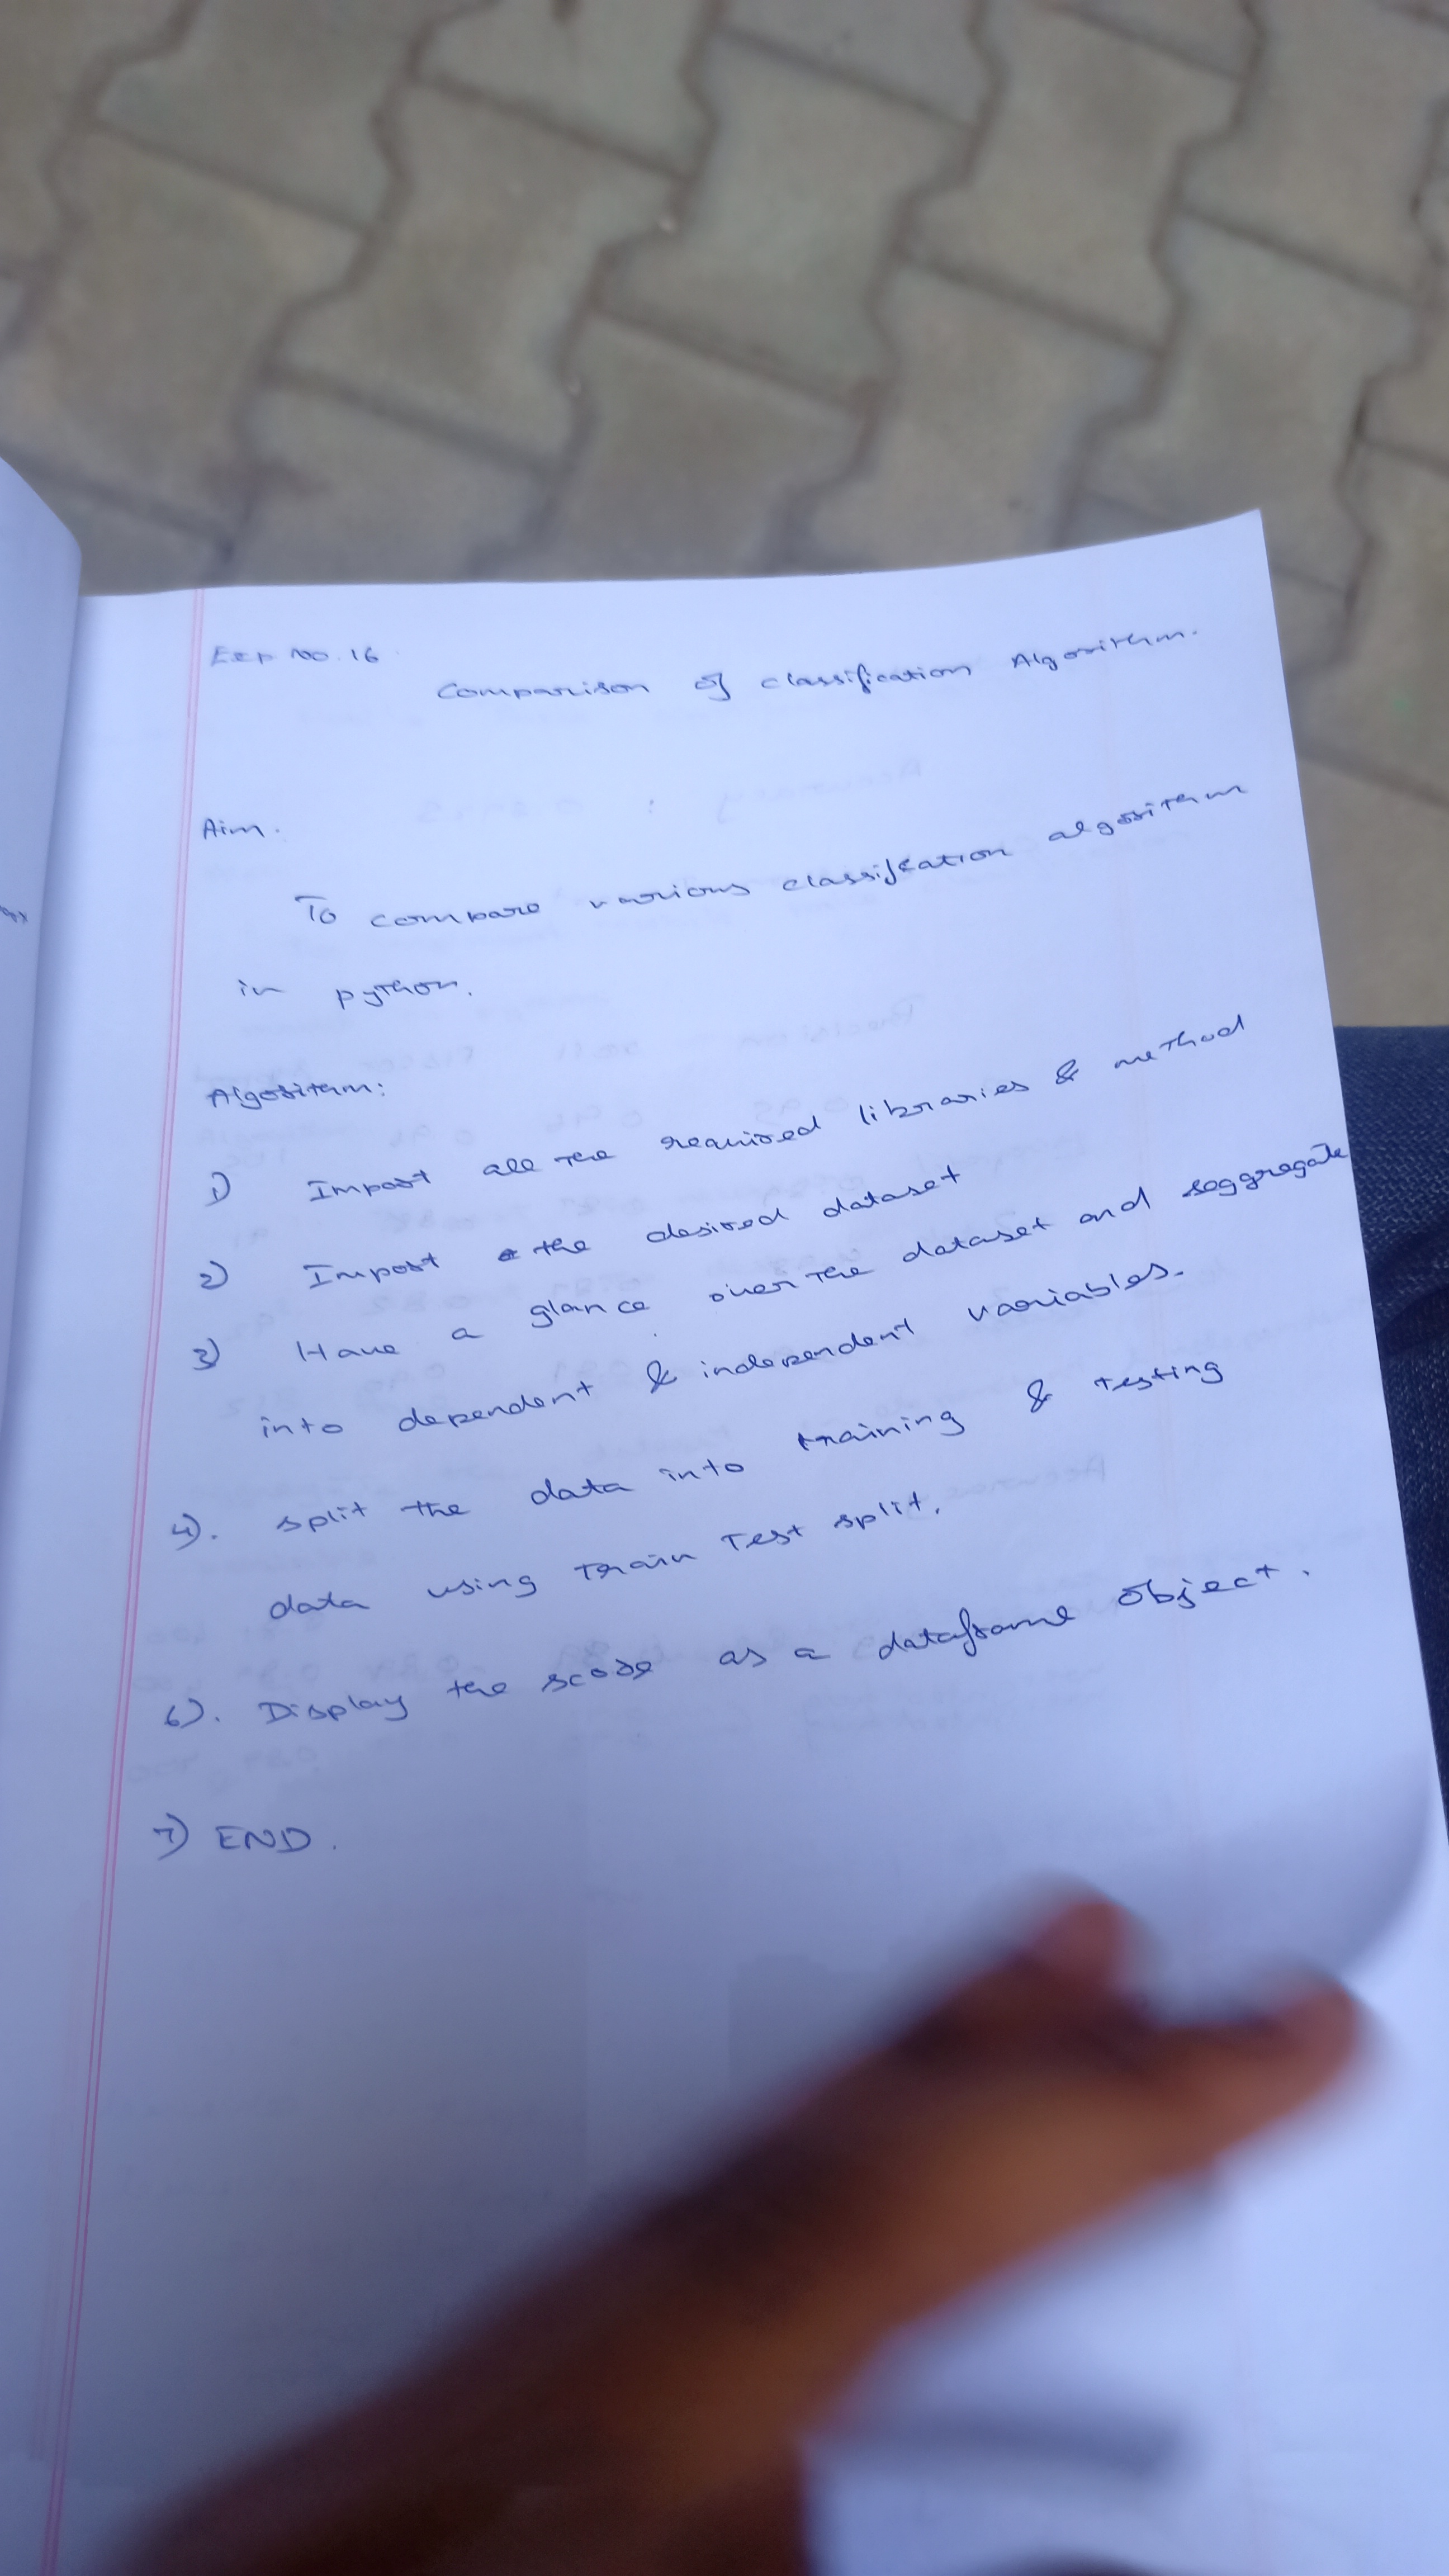 Exp No. 16
Comparison of classification Algorithm.
Aim.
To compare various classification algorithm
in python.
Algorithm:
1) Import all the required libraries & method
2) Import the desired dataset
3) Have a glance over the dataset and seggregate
into dependent & independent variables.
4). split the data into training & testing
data using Train Test split.
6). Display the score as a dataframe object.
7) END.